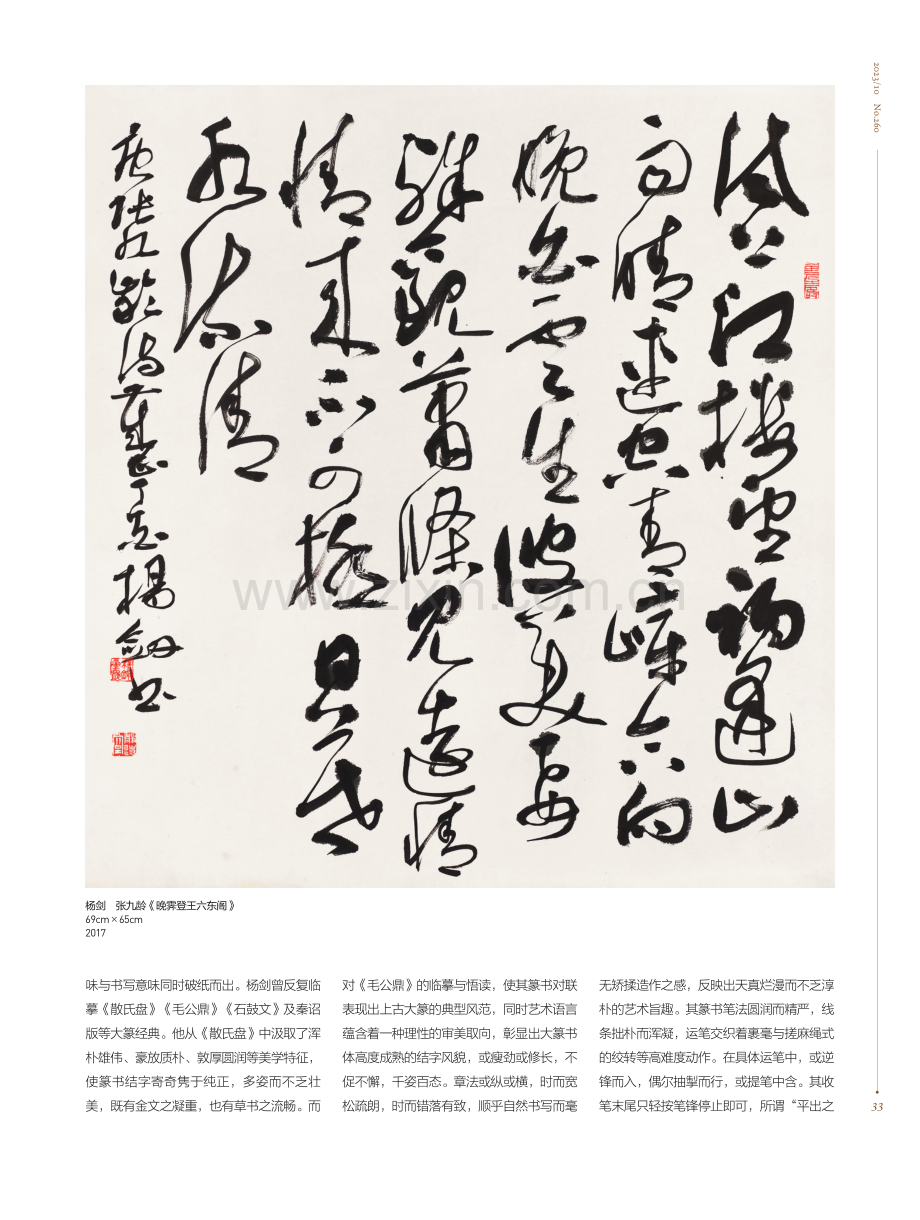 2023/10 No.260
試上江樓望初逢山
雨晴連空青嶂合向
晚白雲生彼美要
殊觀蕭條見遠情
情來不可極日暮
水流清
唐張九齡詩 丁酉楊劍書
www.zixin.com.cn
杨剑 张九龄《晚霁登王六东阁》
69cm×65cm
2017
味与书写意味同时破纸而出。杨剑曾反复临
摹《散氏盘》《毛公鼎》《石鼓文》及秦诏
版等大篆经典。他从《散氏盘》中汲取了浑
朴雄伟、豪放质朴、敦厚圆润等美学特征，
使篆书结字寄奇隽于纯正，多姿而不乏壮
美，既有金文之凝重，也有草书之流畅。而
对《毛公鼎》的临摹与悟读，使其篆书对联
表现出上古大篆的典型风范，同时艺术语言
蕴含着一种理性的审美取向，彰显出大篆书
体高度成熟的结字风貌，或瘦劲或修长，不
促不懈，千姿百态。章法或纵或横，时而宽
松疏朗，时而错落有致，顺乎自然书写而毫
无矫揉造作之感，反映出天真烂漫而不乏淳
朴的艺术旨趣。其篆书笔法圆润而精严，线
条拙朴而浑凝，运笔交织着裹毫与搓麻绳式
的绞转等高难度动作。在具体运笔中，或逆
锋而入，偶尔抽掣而行，或提笔中含。其收
笔末尾只轻按笔锋停止即可，所谓“平出之
33